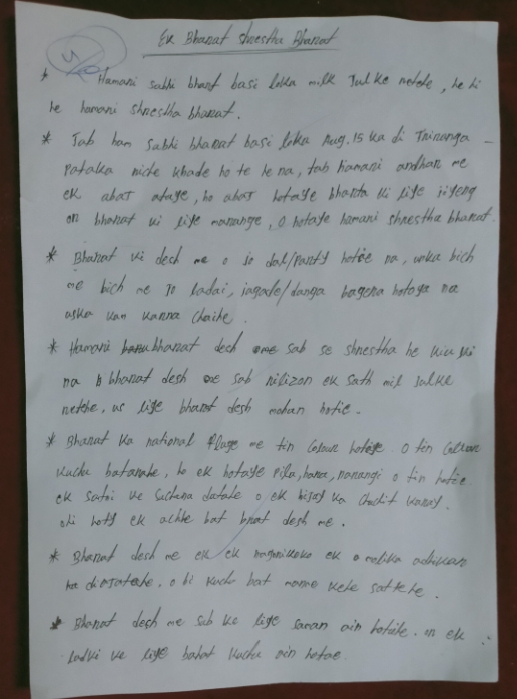 Ek Bharat Shrestha Bharat
* Hamari sabhi bharat basi loka milk Julke rehete, he hi
he hamari shrestha bharat.
* Jab ham sabhi bharat basi loka Aug. 15 ka di Triranga
Pataka niche khade ho te he na, tab hamari andhar me
ek abat ataye, ho abat hotaye bharta ki liye jiyeng
or bharat ki liye marange, o hotaye hamari shrestha bharat.
* Bharat ki desh me o jo dal/party hotie na, unka bich
me bich me jo ladai, jagade/danga hotaya na
uska kam karna chaihe.
* Hamari bharat desh sab se shrestha he kiu ki
na bharat desh me sab rilizon ek sath mil Julke
rehte, us liye bharat desh mohan hotie.
* Bharat ka national flage me tin colour hotaye. O tin colour
kuchu batarahe, ho ek hotaye pila, hara, narangi o tin hotie
ek satri ke suchana o ek bijay ka
ohi hoty ek achhe bat desh me.
* Bharat desh me ek ek ek o adhikar
na o bi kuchu bat kehe sakte he.
* Bharat desh me sab ke liye saman ain hotihe. or ek
ladki ke liye bahat kuchu ain hotae